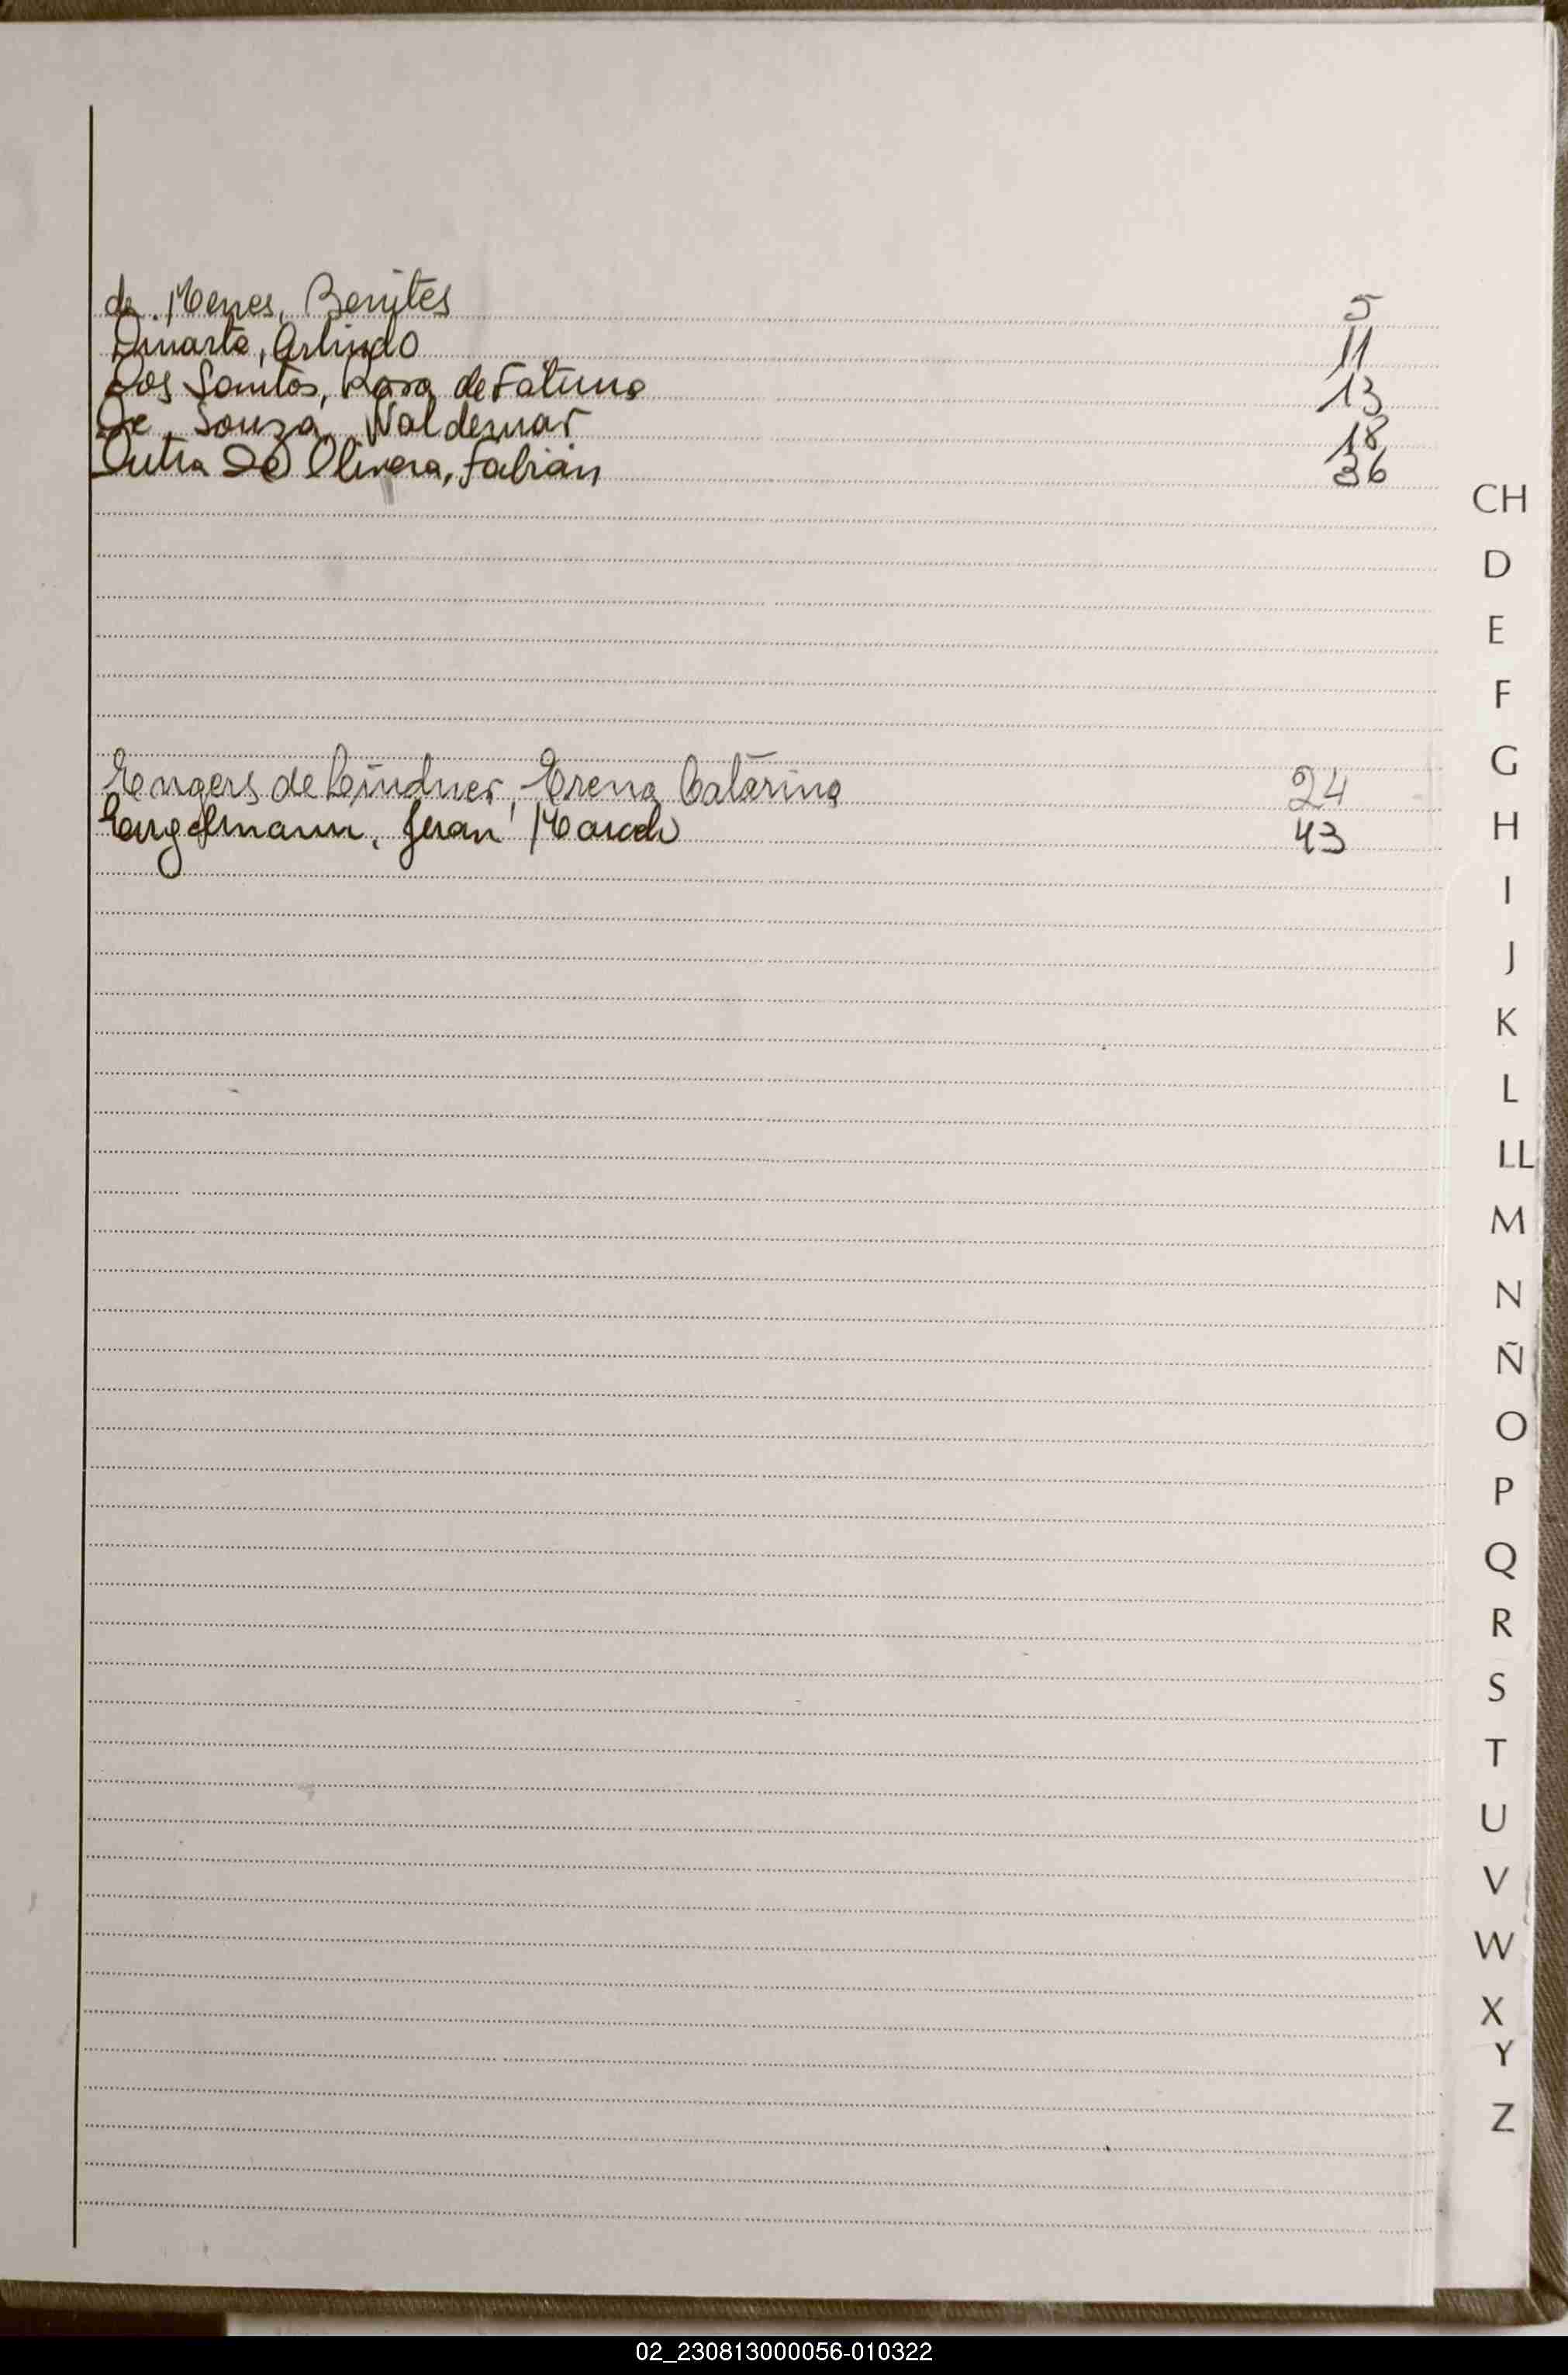 de Menes, Benites 5
Duarte, Arlindo 11
Dos Santos, Rosa de Fatima 13
De Souza, Waldemar 18
Dutra De Olivera, Fabián 36
Engers de Lindner, Erena Catarina 24
Engelmann, Jean 43
CH
D
E
F
G
H
I
J
K
L
LL
M
N
Ñ
O
P
Q
R
S
T
U
V
W
X
Y
Z
02_230813000056-010322